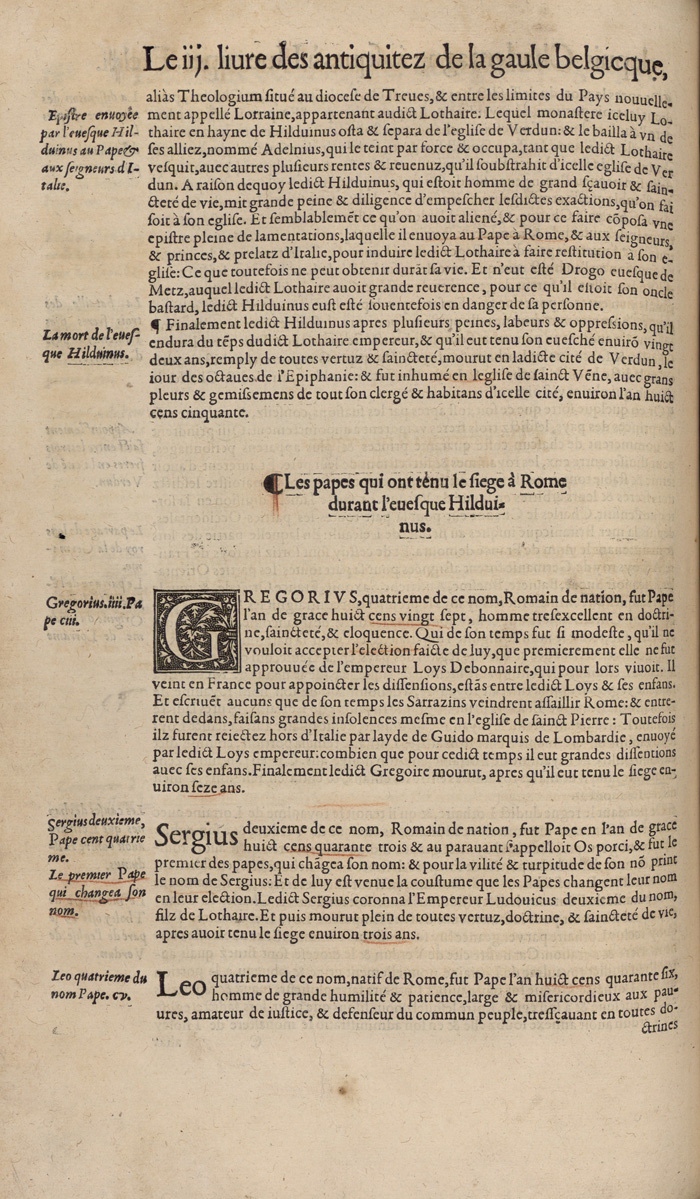 Le iij. liure des antiquitez de la gaule belgicque,
aliàs Theologium situé au diocese de Treues, & entre les limites du Pays nouuelle-
Epistre enuoyée
par l'euesque Hil-
duinus au Pape &
aux seigneurs d'I-
talie.
ment appellé Lorraine, appartenant audict Lothaire: Lequel monastere iceluy Lo-
thaire en hayne de Hilduinus osta & separa de l'eglise de Verdun: & le bailla à vn de
ses alliez, nommé Adelnius, qui le teint par force & occupa, tant que ledict Lothaire
vesquit, auec autres plusieurs rentes & reuenuz, qu'il soubstrahit d'icelle eglise de Ver
dun. A raison dequoy ledict Hilduinus, qui estoit homme de grand sçauoir & sain-
cteté de vie, mit grande peine & diligence d'empescher lesdictes exactions, qu'on fai
soit à son eglise. Et semblablemēt ce qu'on auoit aliené, & pour ce faire cōposa vne
epistre pleine de lamentations, laquelle il enuoya au Pape à Rome, & aux seigneurs,
& princes, & prelatz d'Italie, pour induire ledict Lothaire à faire restitution à son e-
glise: Ce que toutefois ne peut obtenir durāt sa vie. Et n'eut esté Drogo euesque de
Metz, auquel ledict Lothaire auoit grande reuerence, pour ce qu'il estoit son oncle
bastard, ledict Hilduinus eust esté souentefois en danger de sa personne.
La mort de l'eues-
que Hilduinus.
¶ Finalement ledict Hilduinus apres plusieurs peines, labeurs & oppressions, qu'il
endura du tēps dudict Lothaire empereur, & qu'il eut tenu son euesché enuirō vingt
deux ans, remply de toutes vertuz & saincteté, mourut en ladicte cité de Verdun, le
iour des octaues de l'Epiphanie: & fut inhumé en leglise de sainct Vēne, auec grans
pleurs & gemissemens de tout son clergé & habitans d'icelle cité, enuiron l'an huict
cens cinquante.
¶ Les papes qui ont tenu le siege à Rome
durant l'euesque Hildui-
nus.
Gregorius.iiii.Pa
pe ciii.
GREGORIVS, quatrieme de ce nom, Romain de nation, fut Pape
l'an de grace huict cens vingt sept, homme tresexcellent en doctri-
ne, saincteté, & eloquence. Qui de son temps fut si modeste, qu'il ne
vouloit accepter l'election faicte de luy, que premierement elle ne fut
approuuée de l'empereur Loys Debonnaire, qui pour lors viuoit. Il
veint en France pour appoincter les dissensions, estās entre ledict Loys & ses enfans.
Et escriuēt aucuns que de son temps les Sarrazins veindrent assaillir Rome: & entre-
rent dedans, faisans grandes insolences mesme en l'eglise de sainct Pierre: Toutefois
ilz furent reiectez hors d'Italie par layde de Guido marquis de Lombardie, enuoyé
par ledict Loys empereur: combien que pour cedict temps il eut grandes dissentions
auec ses enfans. Finalement ledict Gregoire mourut, apres qu'il eut tenu le siege en-
uiron seze ans.
Sergius deuxieme,
Pape cent quatrie
me.
Le premier Pape
qui changea son
nom.
Sergius deuxieme de ce nom, Romain de nation, fut Pape en l'an de grace
huict cens quarante trois & au parauant s'appelloit Os porci, & fut le
premier des papes, qui chāgea son nom: & pour la vilité & turpitude de son nō print
le nom de Sergius: Et de luy est venue la coustume que les Papes changent leur nom
en leur election. Ledict Sergius coronna l'Empereur Ludouicus deuxieme du nom,
filz de Lothaire. Et puis mourut plein de toutes vertuz, doctrine, & saincteté de vie,
apres auoir tenu le siege enuiron trois ans.
Leo quatrieme du
nom Pape. cv.
Leo quatrieme de ce nom, natif de Rome, fut Pape l'an huict cens quarante six,
homme de grande humilité & patience, large & misericordieux aux pau-
ures, amateur de iustice, & defenseur du commun peuple, tressçauant en toutes do-
ctrines